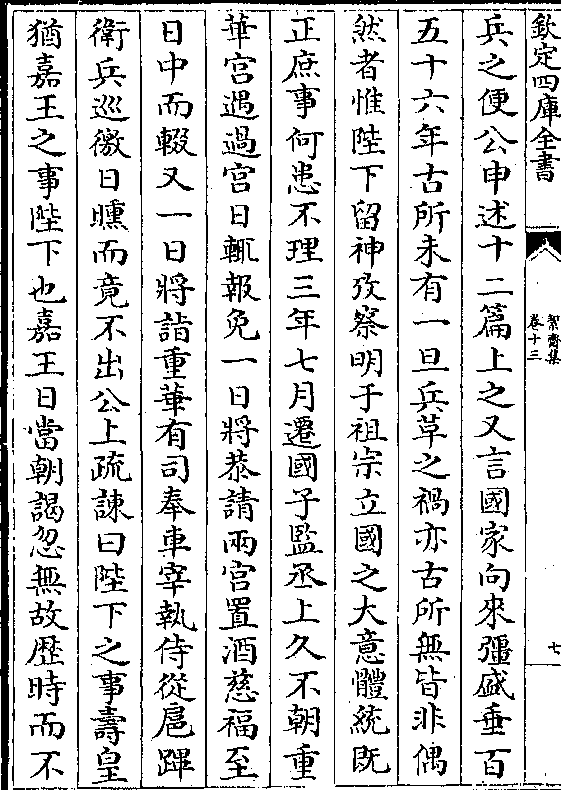 欽定四庫全書
絜齋集
卷十三
七
兵之便公申述十二篇上之又言國家向來彊盛垂百
五十六年古所未有一旦兵革之禍亦古所無皆非偶
然者惟陛下留神攷察明于祖宗立國之大意體統既
正庶事何患不理三年七月遷國子監丞上久不朝重
華宫遇過宫日輒報免一日將恭請兩宫置酒慈福至
日中而輟又一日將詣重華有司奉車宰執侍從扈蹕
衛兵巡徼日曛而竟不出公上疏諫曰陛下之事壽皇
猶嘉王之事陛下也嘉王日當朝謁忽無故歴時而不